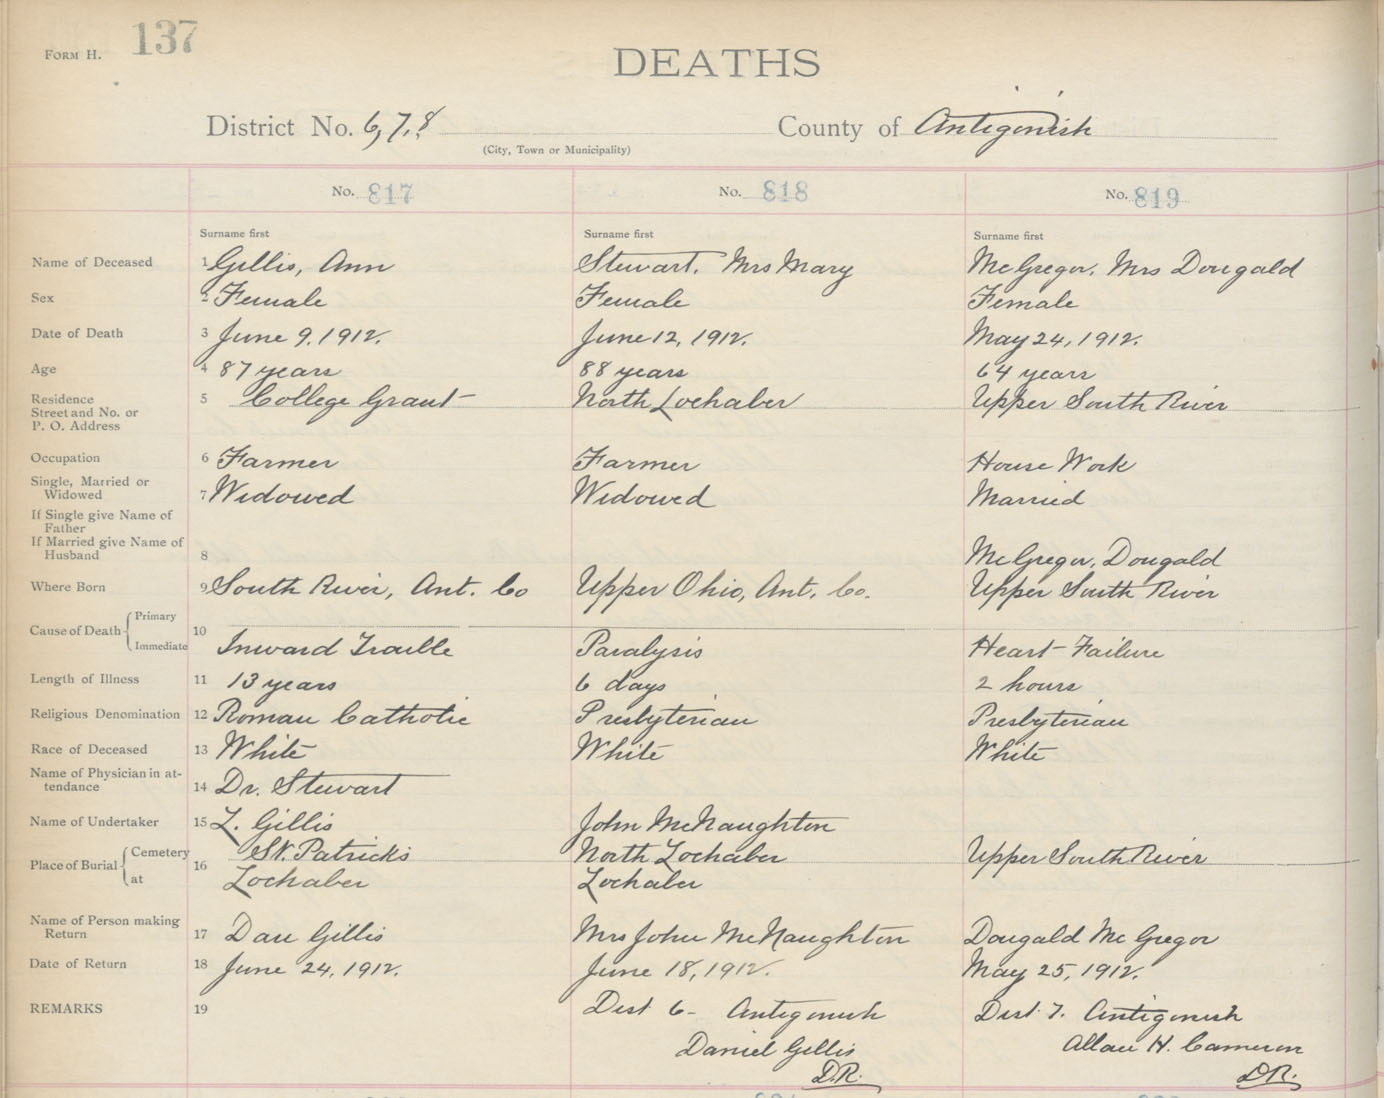 FORM H. 137
DEATHS
District No. 6, 7, 8 County of Antigonish
(City, Town or Municipality)
No. 817 No. 818 No. 819
Surname first Surname first Surname first
Name of Deceased 1 Gillis, Ann Stewart, Mrs Mary McGregor, Mrs Dougald
Sex 2 Female Female Female
Date of Death 3 June 9, 1912. June 12, 1912. May 24, 1912.
Age 4 87 years 88 years 64 years
Residence
Street and No. or
P. O. Address
5 College Grant North Lochaber Upper South River
Occupation 6 Farmer Farmer House Work
Single, Married or
Widowed
7 Widowed Widowed Married
If Single give Name of
Father
If Married give Name of
Husband
8 McGregor, Dougald
Where Born 9 South River, Ant. Co Upper Ohio, Ant. Co. Upper South River
Cause of Death Primary
Immediate
10 Inward Trouble Paralysis Heart Failure
Length of Illness 11 13 years 6 days 2 hours
Religious Denomination 12 Roman Catholic Presbyterian Presbyterian
Race of Deceased 13 White White White
Name of Physician in at-
tendance
14 Dr. Stewart
Name of Undertaker 15 L. Gillis John McNaughton
Place of Burial Cemetery
at
16 St. Patricks North Lochaber Upper South River
Lochaber Lochaber
Name of Person making
Return
17 Dan Gillis Mrs John McNaughton Dougald McGregor
Date of Return 18 June 24, 1912. June 18, 1912. May 25, 1912.
REMARKS 19 Dist 6- Antigonish Dist. 7. Antigonish
Daniel Gillis Allan H. Cameron
D.R. D.R.